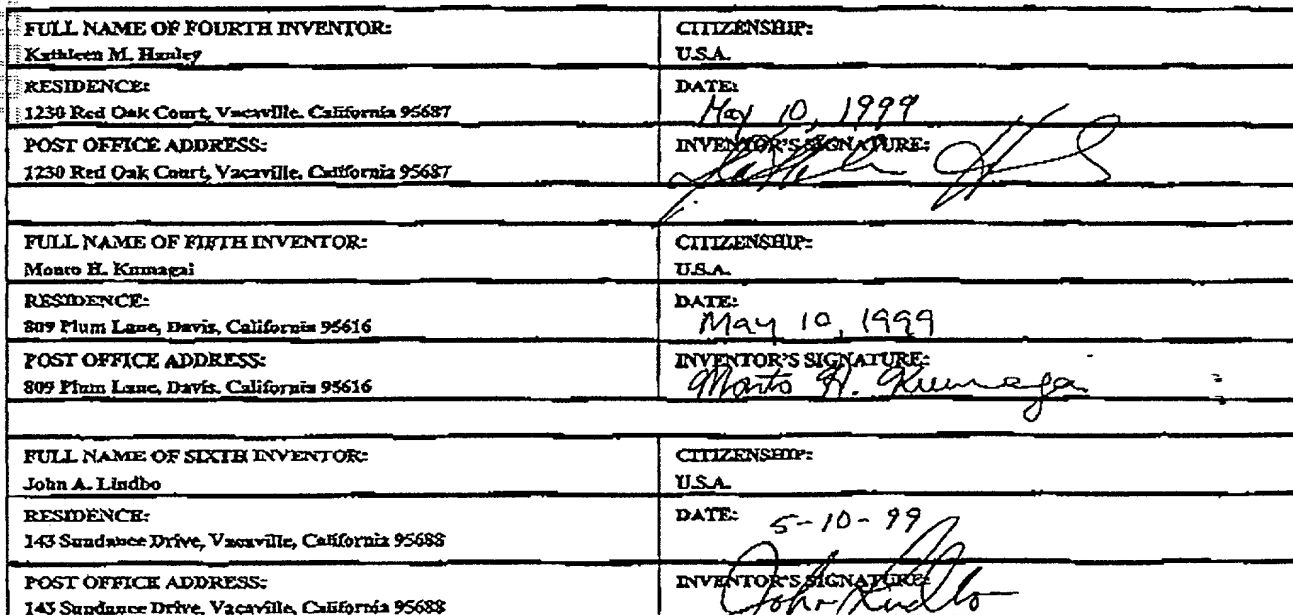 FULL NAME OF FOURTH INVENTOR:
Kathleen M. Hanley
CITIZENSHIP:
U.S.A.
RESIDENCE:
1230 Red Oak Court, Vacaville, California 95687
DATE:
May 10, 1999
POST OFFICE ADDRESS:
1230 Red Oak Court, Vacaville, California 95687
INVENTOR'S SIGNATURE:
FULL NAME OF FIFTH INVENTOR:
Monto H. Kumagai
CITIZENSHIP:
U.S.A.
RESIDENCE:
809 Plum Lane, Davis, California 95616
DATE:
May 10, 1999
POST OFFICE ADDRESS:
809 Plum Lane, Davis, California 95616
INVENTOR'S SIGNATURE:
Monto H. Kumagai
FULL NAME OF SIXTH INVENTOR:
John A. Lindbo
CITIZENSHIP:
U.S.A.
RESIDENCE:
143 Sundance Drive, Vacaville, California 95688
DATE:
5-10-99
POST OFFICE ADDRESS:
143 Sundance Drive, Vacaville, California 95688
INVENTOR'S SIGNATURE:
John Lindbo